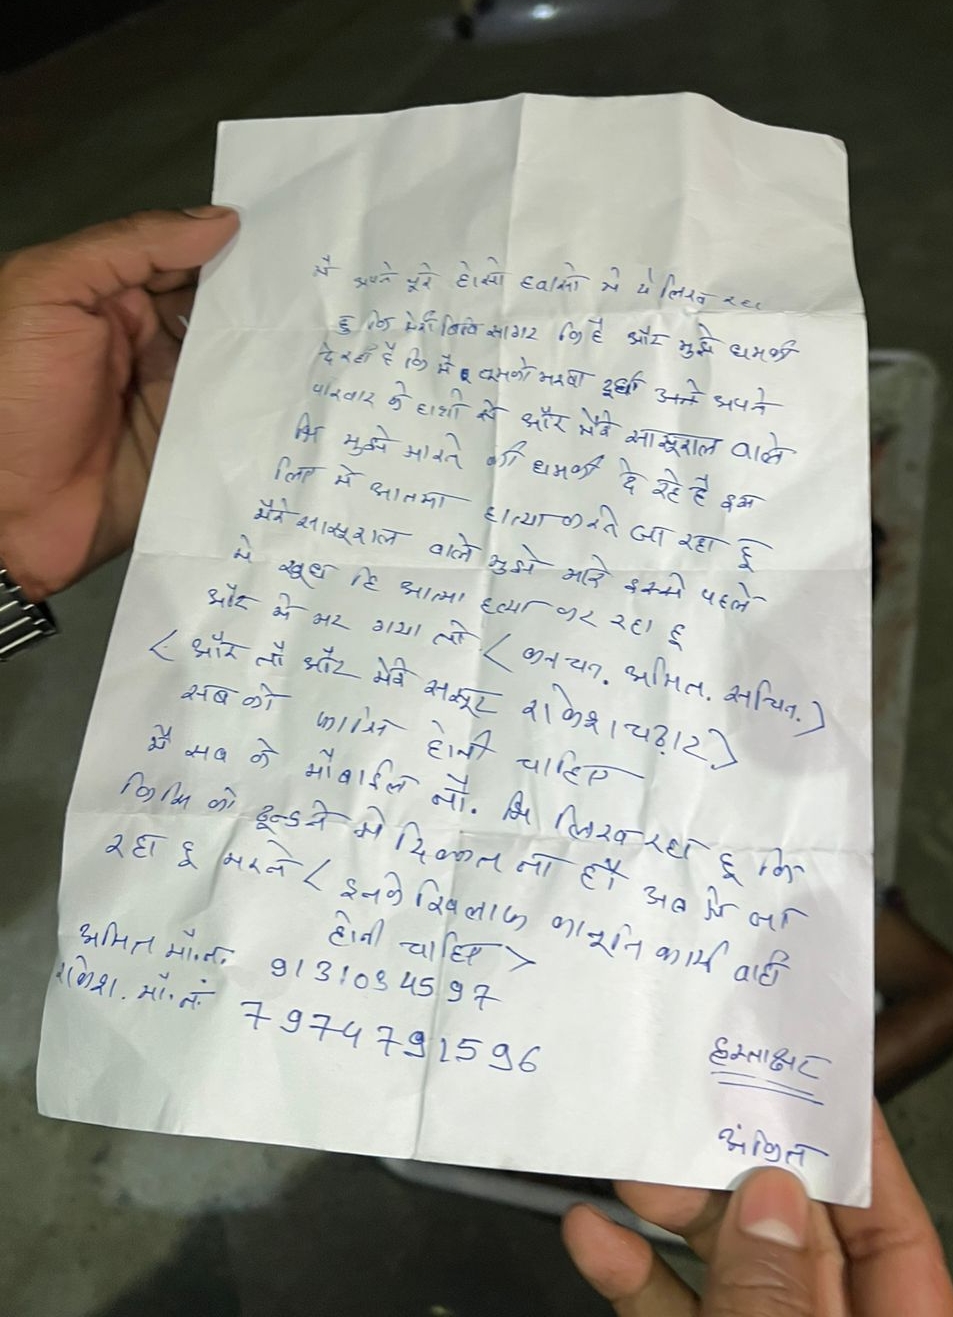 मै अपने पूरे होसो हवासो मे ये लिख रहा
हु कि मेरी बिवि सागर कि है और मुझे धमकी
दे रही है कि मै तुमको मरवा दूंगी अपने
परिवार के हाथो से और मेरे सासूराल वाले
भि मुझे मारने की धमकी दे रहे है इस
लिए मे आतमा हात्या करने जा रहा हू
मेरे सासूराल वाले मुझे मारे इससे पहले
मे खूध हि आत्मा हत्या कर रहा हू
और मे मर गया तो < कनचन. अमित. सचिन.)
< और तौ और मेरे ससूर राकेश। चढ़ार)
सब को फासि होनी चाहिए
मै सब के मौबाईल नौ. भि लिख रहा हू कि
किसि को ढून्डने मे दिक्कत ना हौ अब मे जा
रहा हू मरने < इनके खिलाफ कानूनि कार्य वाही
होनी चाहिए >
अमित मौ.न. 9131034597
राकेश. मौ.नं 7974791596
हस्ताक्षर
अंकित